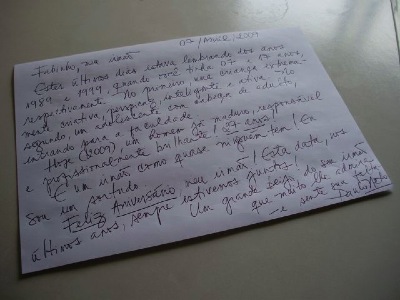 07/Março/2009
Fabinho, meu irmão
Estes últimos dias estava lembrando dos anos
1989 e 1999, quando você tinha 07 e 17 anos,
respectivamente. No primeiro uma criança extrema-
mente criativa, perspicaz, inteligente e ativa. No
segundo, um adolescente com cabeça de adulto,
entrando para a faculdade.
Hoje (2009), um homem já maduro, responsável
e profissionalmente brilhante! 27 anos!
É um irmão como quase ninguém tem! Eu
sou um sortudo.
Feliz Aniversário meu irmão! Esta data, nos
últimos anos, sempre estivemos juntos!
Um grande beijo do seu irmão
que muito lhe admira
e sente sua falta,